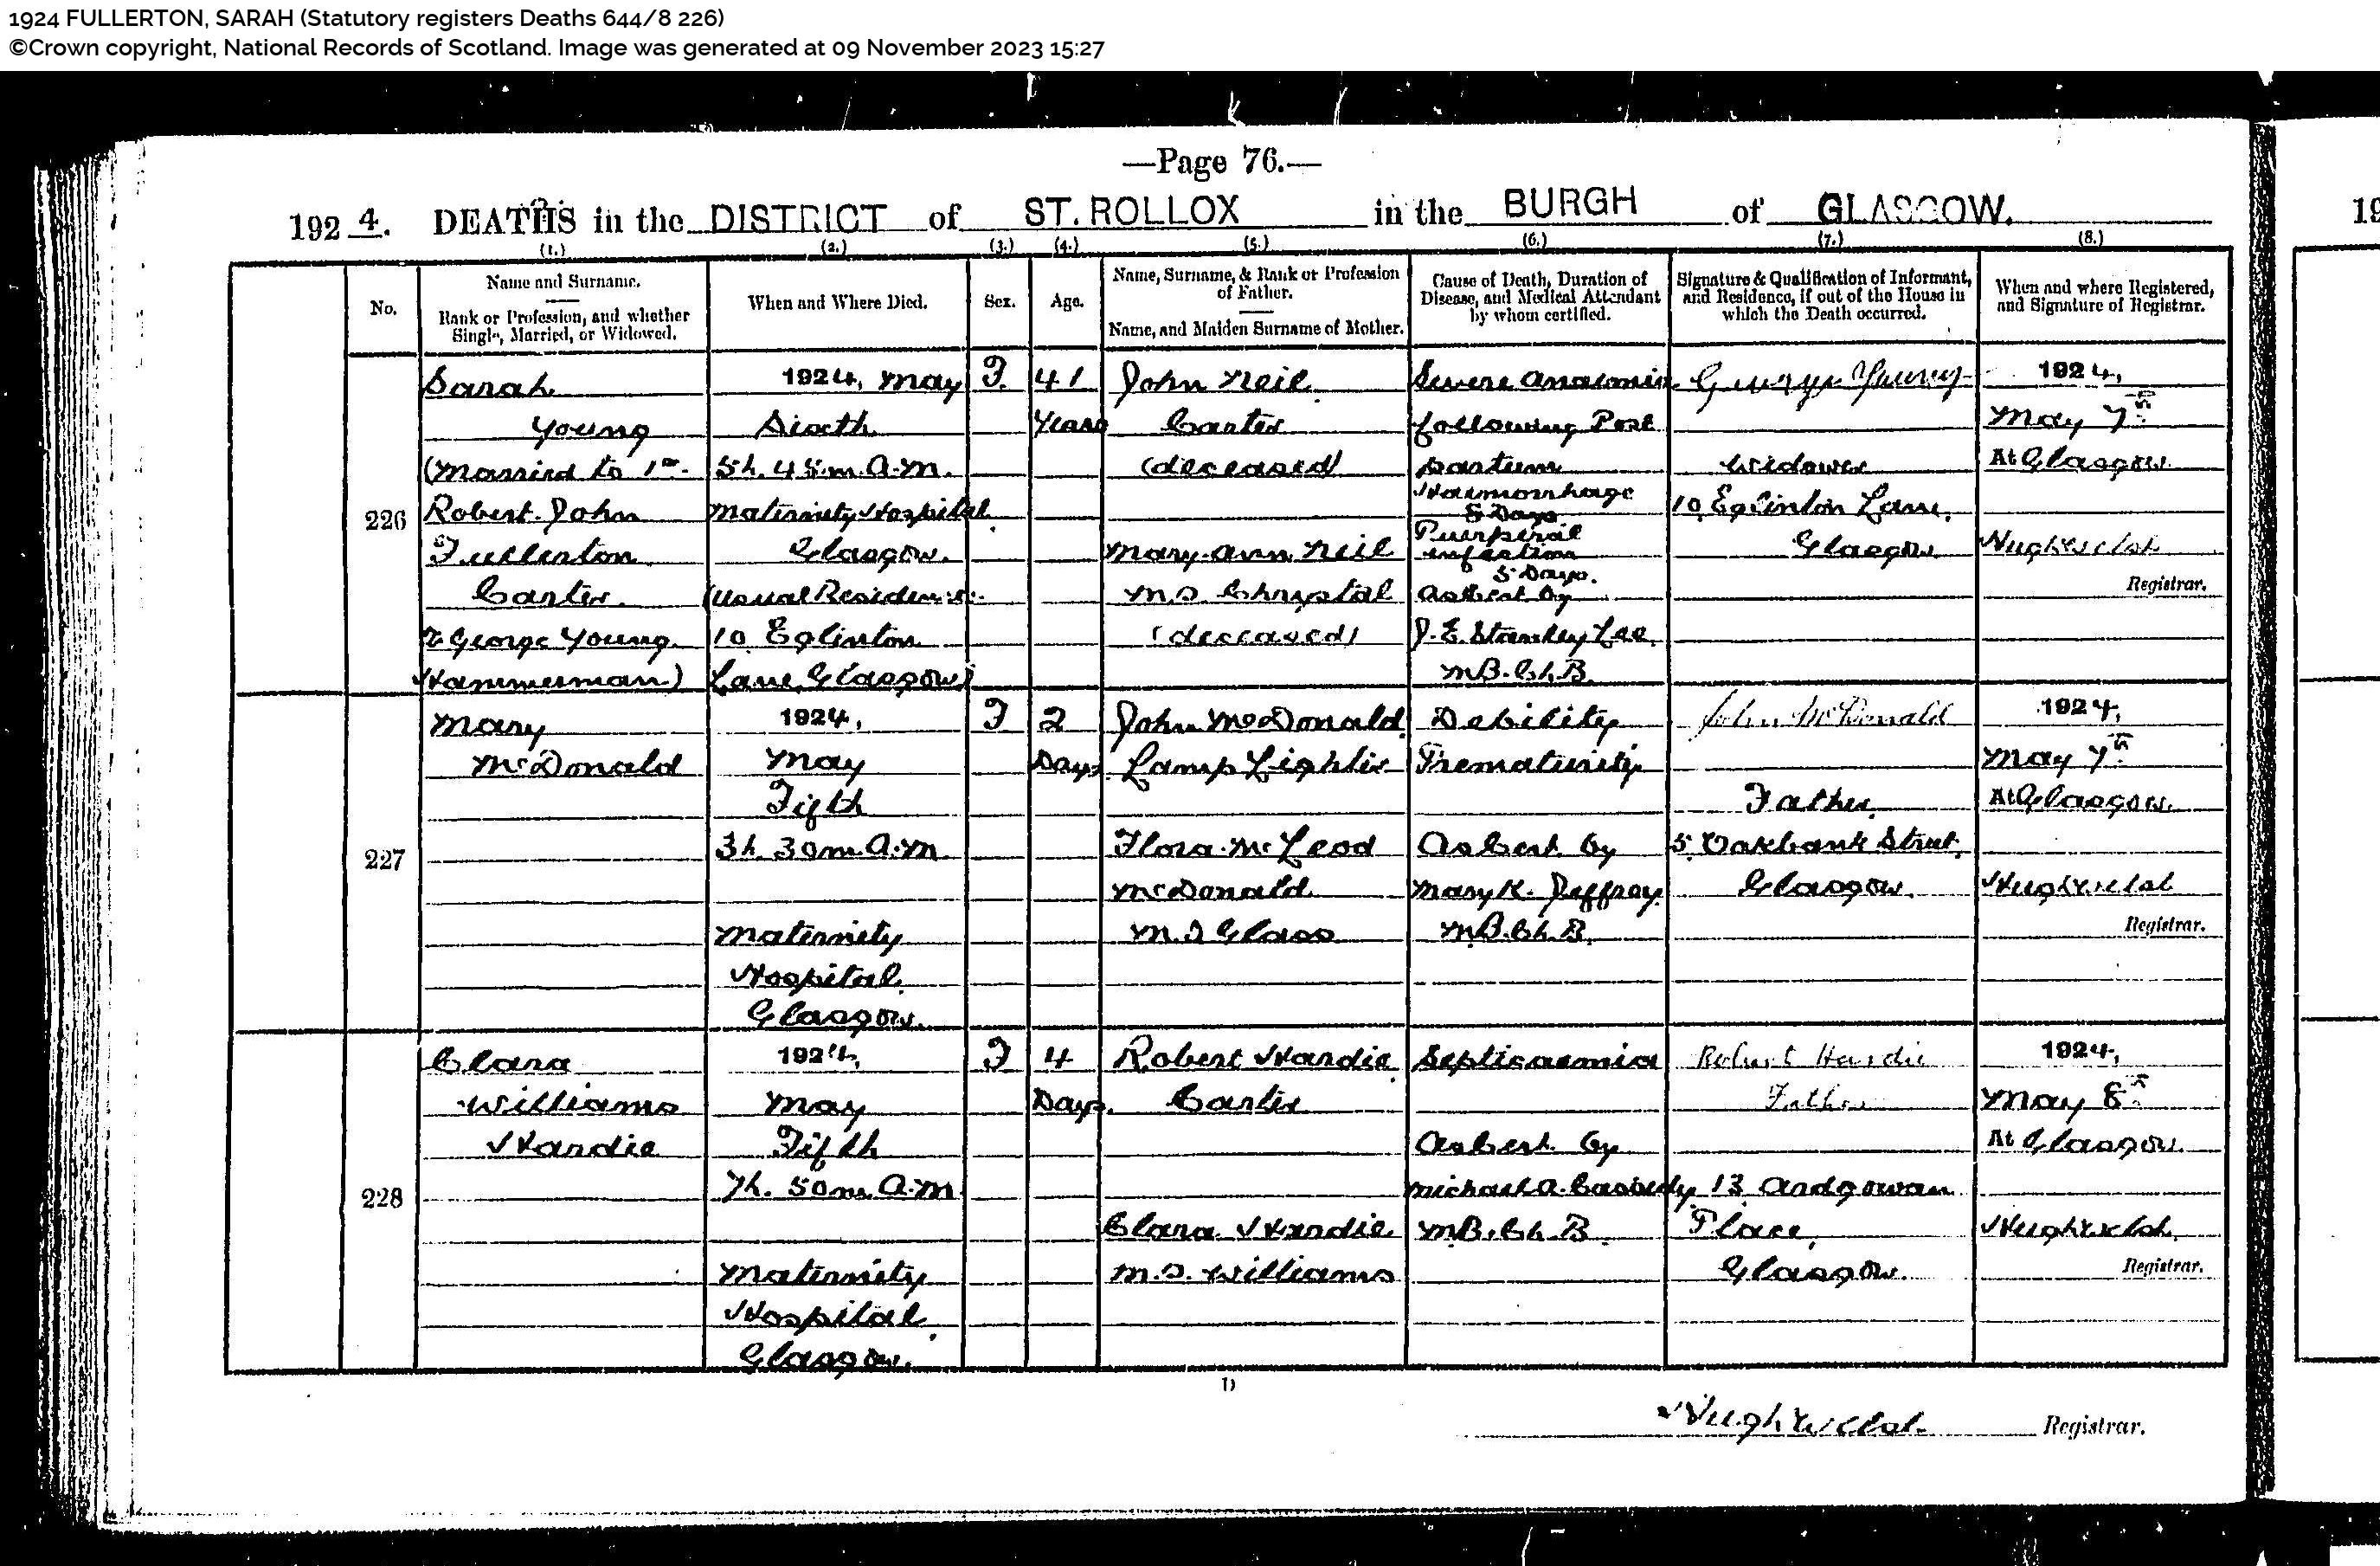 1924 FULLERTON, SARAH (Statutory registers Deaths 644/8 226)
©Crown copyright, National Records of Scotland. Image was generated at 09 November 2023 15:27
—Page 76.—
1924. DEATHS in the DISTRICT of ST. ROLLOX in the BURGH of GLASGOW.
(1.) (2.) (3.) (4.) (5.) (6.) (7.) (8.)
No.
Name and Surname.
Rank or Profession, and whether
Single, Married, or Widowed.
When and Where Died.
Sex.
Age.
Name, Surname, & Rank or Profession
of Father.
Name, and Maiden Surname of Mother.
Cause of Death, Duration of
Disease, and Medical Attendant
by whom certified.
Signature & Qualification of Informant,
and Residence, if out of the House in
which the Death occurred.
When and where Registered,
and Signature of Registrar.
226
Sarah
Young
(Married to 1st.
Robert John
Fullerton
Carter
2. George Young
Hammerman)
1924, May
Sixth
5h. 45m. A.M.
Maternity Hospital
Glasgow.
(Usual Residence
10 Eglinton
Lane, Glasgow)
F.
41
Years
John Neil
Carter
(deceased)
Mary Ann Neil
M.S. Chrystal
(deceased)
Severe Anaemia
following Post
partum
Haemorrhage
5 Days
Puerperal
infection
5 Days.
As Cert by
J. E. Stanley Lee
M.B. Ch. B.
George Young
Widower
10, Eglinton Lane,
Glasgow
1924,
May 7th
At Glasgow
Hugh Welsh
Registrar.
227
Mary
McDonald
1924,
May
Fifth
3h. 30m. A.M.
Maternity
Hospital,
Glasgow.
F
2
Days
John McDonald
Lamp Lighter
Flora McLeod
McDonald
M.S Glass
Debility
Prematurity
As Cert. by
Mary K. Jeffrey
M.B. Ch. B.
John McDonald
Father,
5, Oakbank Street,
Glasgow.
1924,
May 7th
At Glasgow.
Hugh Welsh
Registrar.
228
Clara
Williams
Hardie
1924,
May
Fifth
7h. 50m A.M
Maternity
Hospital,
Glasgow.
F
4
Days.
Robert Hardie
Carter
Clara Hardie
M.S. Williams
Septicaemia
As Cert. by
Michael A. Cassidy
M.B. Ch. B.
Robert Hardie
Father
13 Ardgowan
Place,
Glasgow.
1924,
May 8th
At Glasgow.
Hugh Welsh
Registrar.
D
Hugh Welsh Registrar.